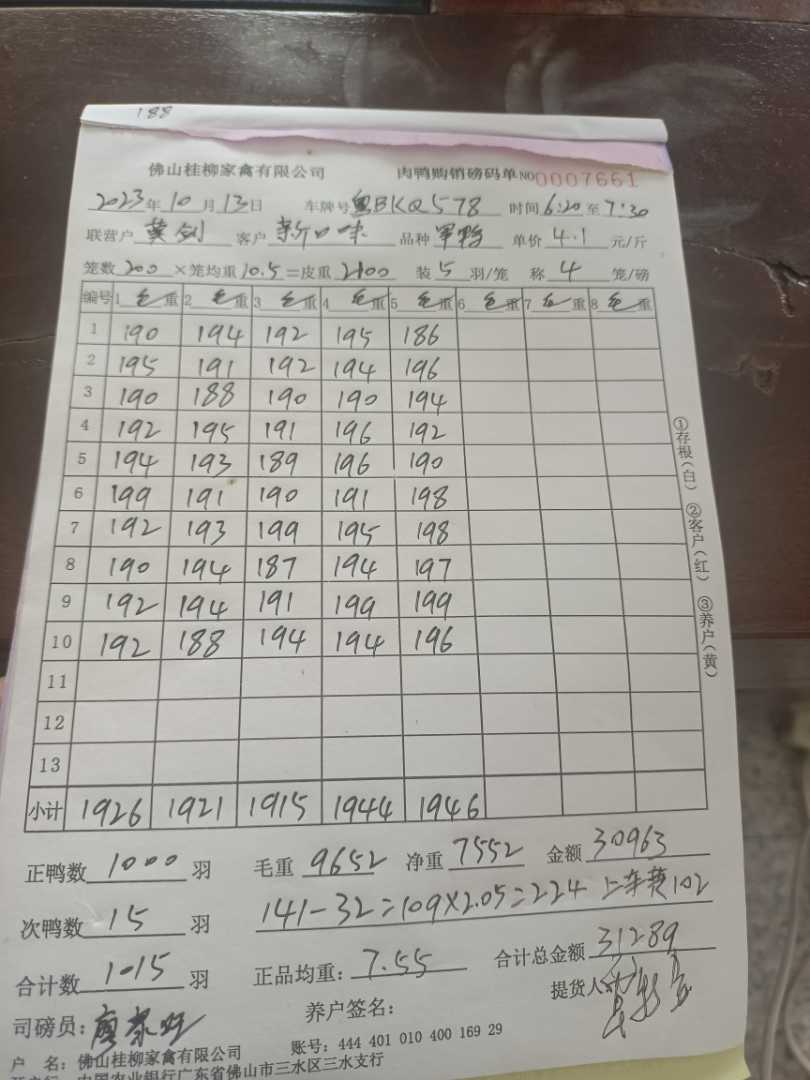 188
佛山桂柳家禽有限公司 肉鸭购销磅码单 NO 0007661
2023年10月13日 车牌号 粤BKQ578 时间 6:20 至 7:30
联营户 黄剑 客户 新口味 品种 军鸭 单价 4.1 元/斤
笼数 200 ×笼均重 10.5 =皮重 2100 装 5 羽/笼 称 4 笼/磅
编号 1 毛重 2 毛重 3 毛重 4 毛重 5 毛重 6 毛重 7 毛重 8 毛重
1 190 194 192 195 186
2 195 191 192 194 196
3 190 188 190 190 194
4 192 195 191 196 192
5 194 193 189 196 190
6 199 191 190 191 198
7 192 193 199 195 198
8 190 194 187 194 197
9 192 194 191 199 199
10 192 188 194 194 196
11
12
13
小计 1926 1921 1915 1944 1946
①存根(白) ②客户(红) ③养户(黄)
正鸭数 1000 羽 毛重 9652 净重 7552 金额 30963
次鸭数 15 羽 141-32=109×2.05=224 上车费102
合计数 1015 羽 正品均重: 7.55 合计总金额 31289
司磅员: 养户签名: 提货人:
户 名: 佛山桂柳家禽有限公司 账号: 444 401 010 400 169 29
开户行: 中国农业银行广东省佛山市三水区三水支行